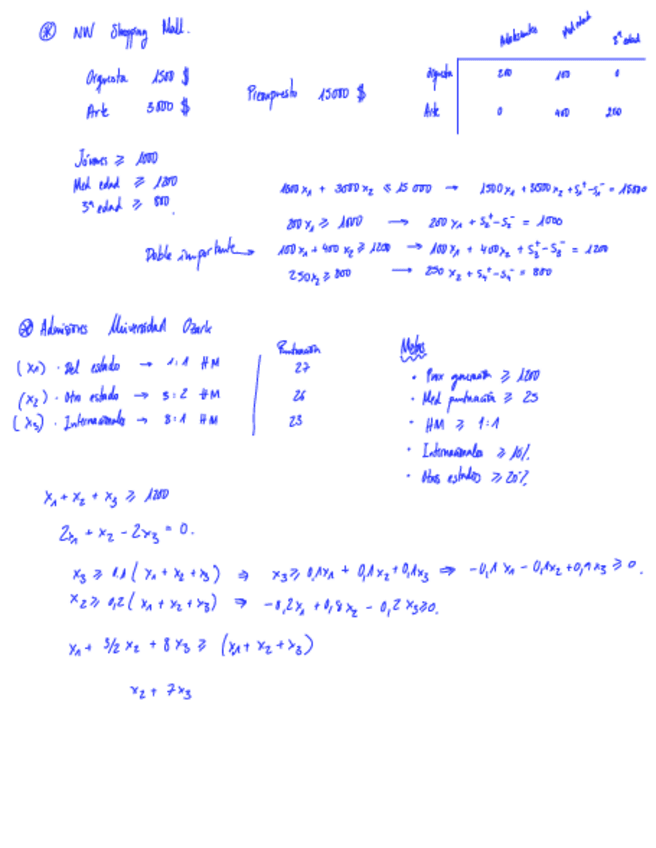 ⊛ NW Shopping Mall.
Adolescentes Med edad 3ª edad
Orquesta 1500 $
Orquesta 200 100 0
Presupuesto 15000 $
Arte 3000 $
Arte 0 400 250
Jóvenes ≥ 1000
Med edad ≥ 1200
3ª edad ≥ 800.
1500 x₁ + 3000 x₂ ≤ 15 000 → 1500 x₁ + 3500 x₂ + S₁⁺ - S₁⁻ = 15000
200 x₁ ≥ 1000 → 200 x₁ + S₂⁺ - S₂⁻ = 1000
Doble importante → 100 x₁ + 400 x₂ ≥ 1200 → 100 x₁ + 400 x₂ + S₃⁺ - S₃⁻ = 1200
250 x₂ ≥ 800 → 250 x₂ + S₄⁺ - S₄⁻ = 800
⊛ Admisiones Universidad Ozark
Puntuación
Metas
(x₁) · Del estado → 1:1 HM 27
(x₂) · Otro estado → 3:2 HM 26
(x₃) · Internacionales → 8:1 HM 23
· ≥ 1200
· Med puntuación ≥ 25
· HM ≥ 1:1
· Internacionales ≥ 10%
· Otros estados ≥ 20%
x₁ + x₂ + x₃ ≥ 1200
2x₁ + x₂ - 2x₃ = 0.
x₃ ≥ 0.1 ( x₁ + x₂ + x₃ ) ⇒ x₃ ≥ 0,1x₁ + 0,1x₂ + 0,1x₃ ⇒ -0,1 x₁ - 0,1x₂ + 0,9 x₃ ≥ 0.
x₂ ≥ 0,2 ( x₁ + x₂ + x₃ ) ⇒ -0,2x₁ + 0,8x₂ - 0,2 x₃ ≥ 0.
x₁ + 3/2 x₂ + 8 x₃ ≥ (x₁ + x₂ + x₃)
x₂ + 7x₃